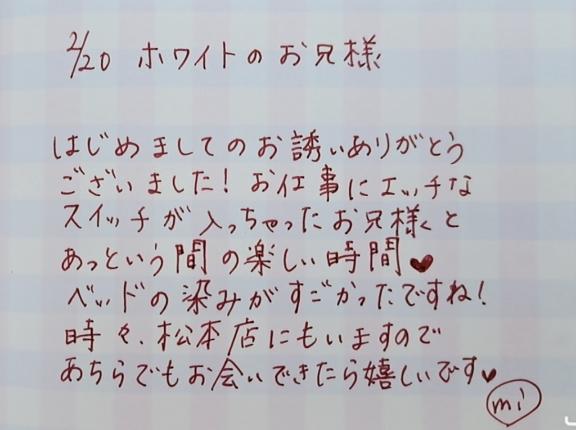 2/20 ホワイトのお兄様
はじめましてのお誘いありがとう
ございました！お仕事にエッチな
スイッチが入っちゃったお兄様と
あっという間の楽しい時間♥
ベッドの染みがすごかったですね！
時々、松本店にもいますので
あちらでもお会いできたら嬉しいです♥
mi